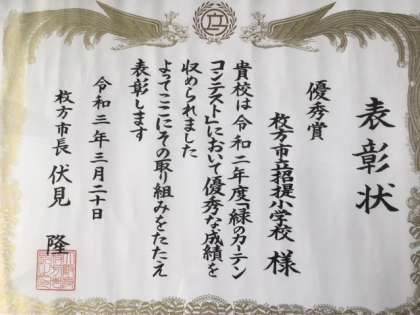 表彰状
優秀賞
枚方市立招提小学校 様
貴校は令和二年度「緑のカーテン
コンテスト」において優秀な成績を
収められました
よってここにその取り組みをたたえ
表彰します
令和三年三月二十日
枚方市長 伏見 隆